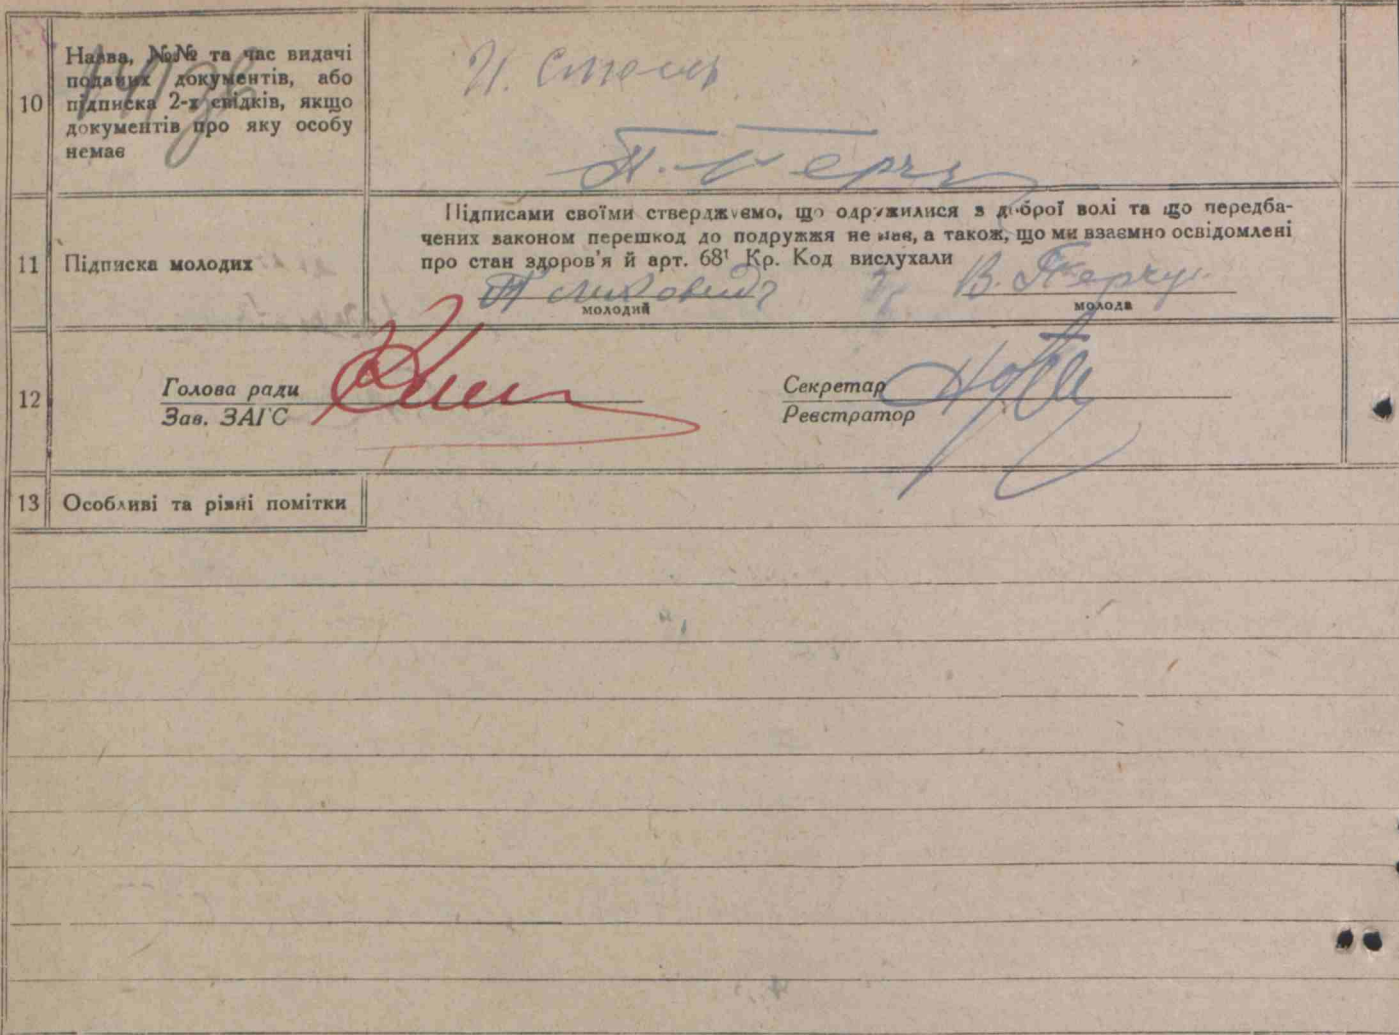 10
Назва, №№ та час видачі
поданих документів, або
підписка 2-х свідків, якщо
документів про яку особу
немає
11
Підписка молодих
Підписами своїми стверджуємо, що одружилися з доброї волі та що передба-
чених законом перешкод до подружжя не має, а також, що ми взаємно освідомлені
про стан здоров'я й арт. 68¹ Кр. Код вислухали
В.
молодий
молода
12
Голова ради
Зав. ЗАГС
Секретар
Реєстратор
13
Особливі та різні помітки